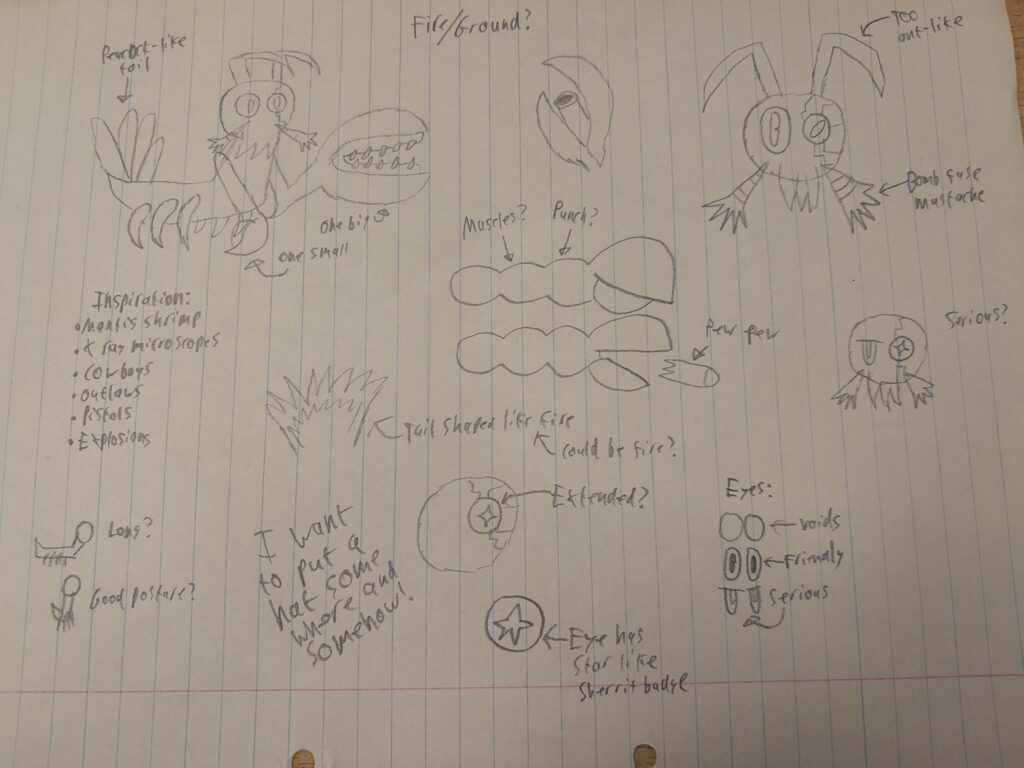 Fire/Ground?
Peacock-like
tail
Too
ant-like
Bomb fuse
Mustache
one big
one small
Muscles?
Punch?
Pew pew
Serious?
Inspiration:
• Mantis shrimp
• X ray microscopes
• Cowboys
• outlaws
• Pistols
• Explosions
Tail shaped like fire
could be fire?
Extended?
Long?
Good posture?
I want
to put a
hat some
where and
somehow!
Eye has
star like
sherrif badge
Eyes:
voids
Friendly
Serious